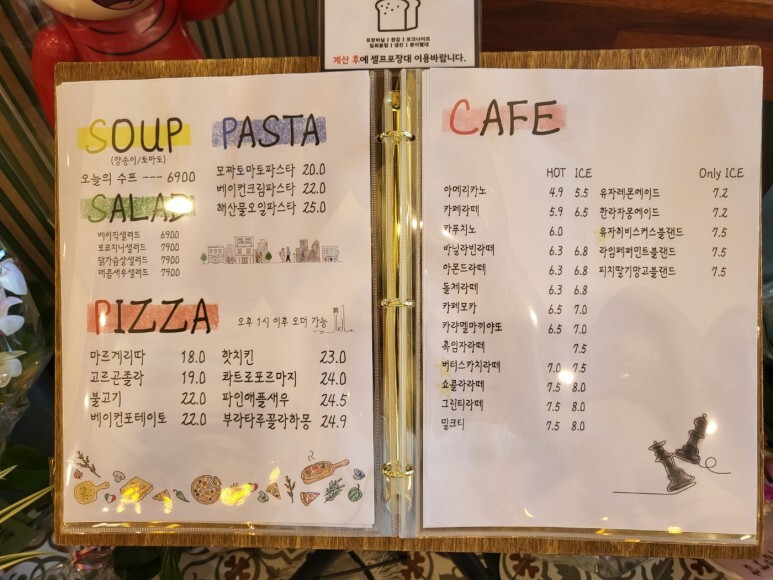 포장비닐 | 장갑 | 포크나이프
계산 후에 셀프포장대 이용바랍니다.
SOUP
(양송이/토마토)
오늘의 수프 --- 6900
SALAD
베이직샐러드 6900
보코치니샐러드 7900
닭가슴살샐러드 7900
매콤새우샐러드 7900
PASTA
모짜토마토파스타 20.0
베이컨크림파스타 22.0
해산물오일파스타 25.0
PIZZA
오후 1시 이후 오더 가능
마르게리따 18.0
고르곤졸라 19.0
불고기 22.0
베이컨포테이토 22.0
핫치킨 23.0
콰트로포르마지 24.0
파인애플새우 24.5
부라타루꼴라하몽 24.9
CAFE
HOT ICE
아메리카노 4.9 5.5
카페라떼 5.9 6.5
카푸치노 6.0
바닐라빈라떼 6.3 6.8
아몬드라떼 6.3 6.8
돌체라떼 6.3 6.8
카페모카 6.5 7.0
카라멜마끼야또 6.5 7.0
흑임자라떼 7.5
버터스카치라떼 7.0 7.5
쇼콜라라떼 7.5 8.0
그린티라떼 7.5 8.0
밀크티 7.5 8.0
Only ICE
유자레몬에이드 7.2
한라자몽에이드 7.2
유자히비스커스블랜드 7.5
라임페퍼민트블랜드 7.5
피치딸기망고블랜드 7.5